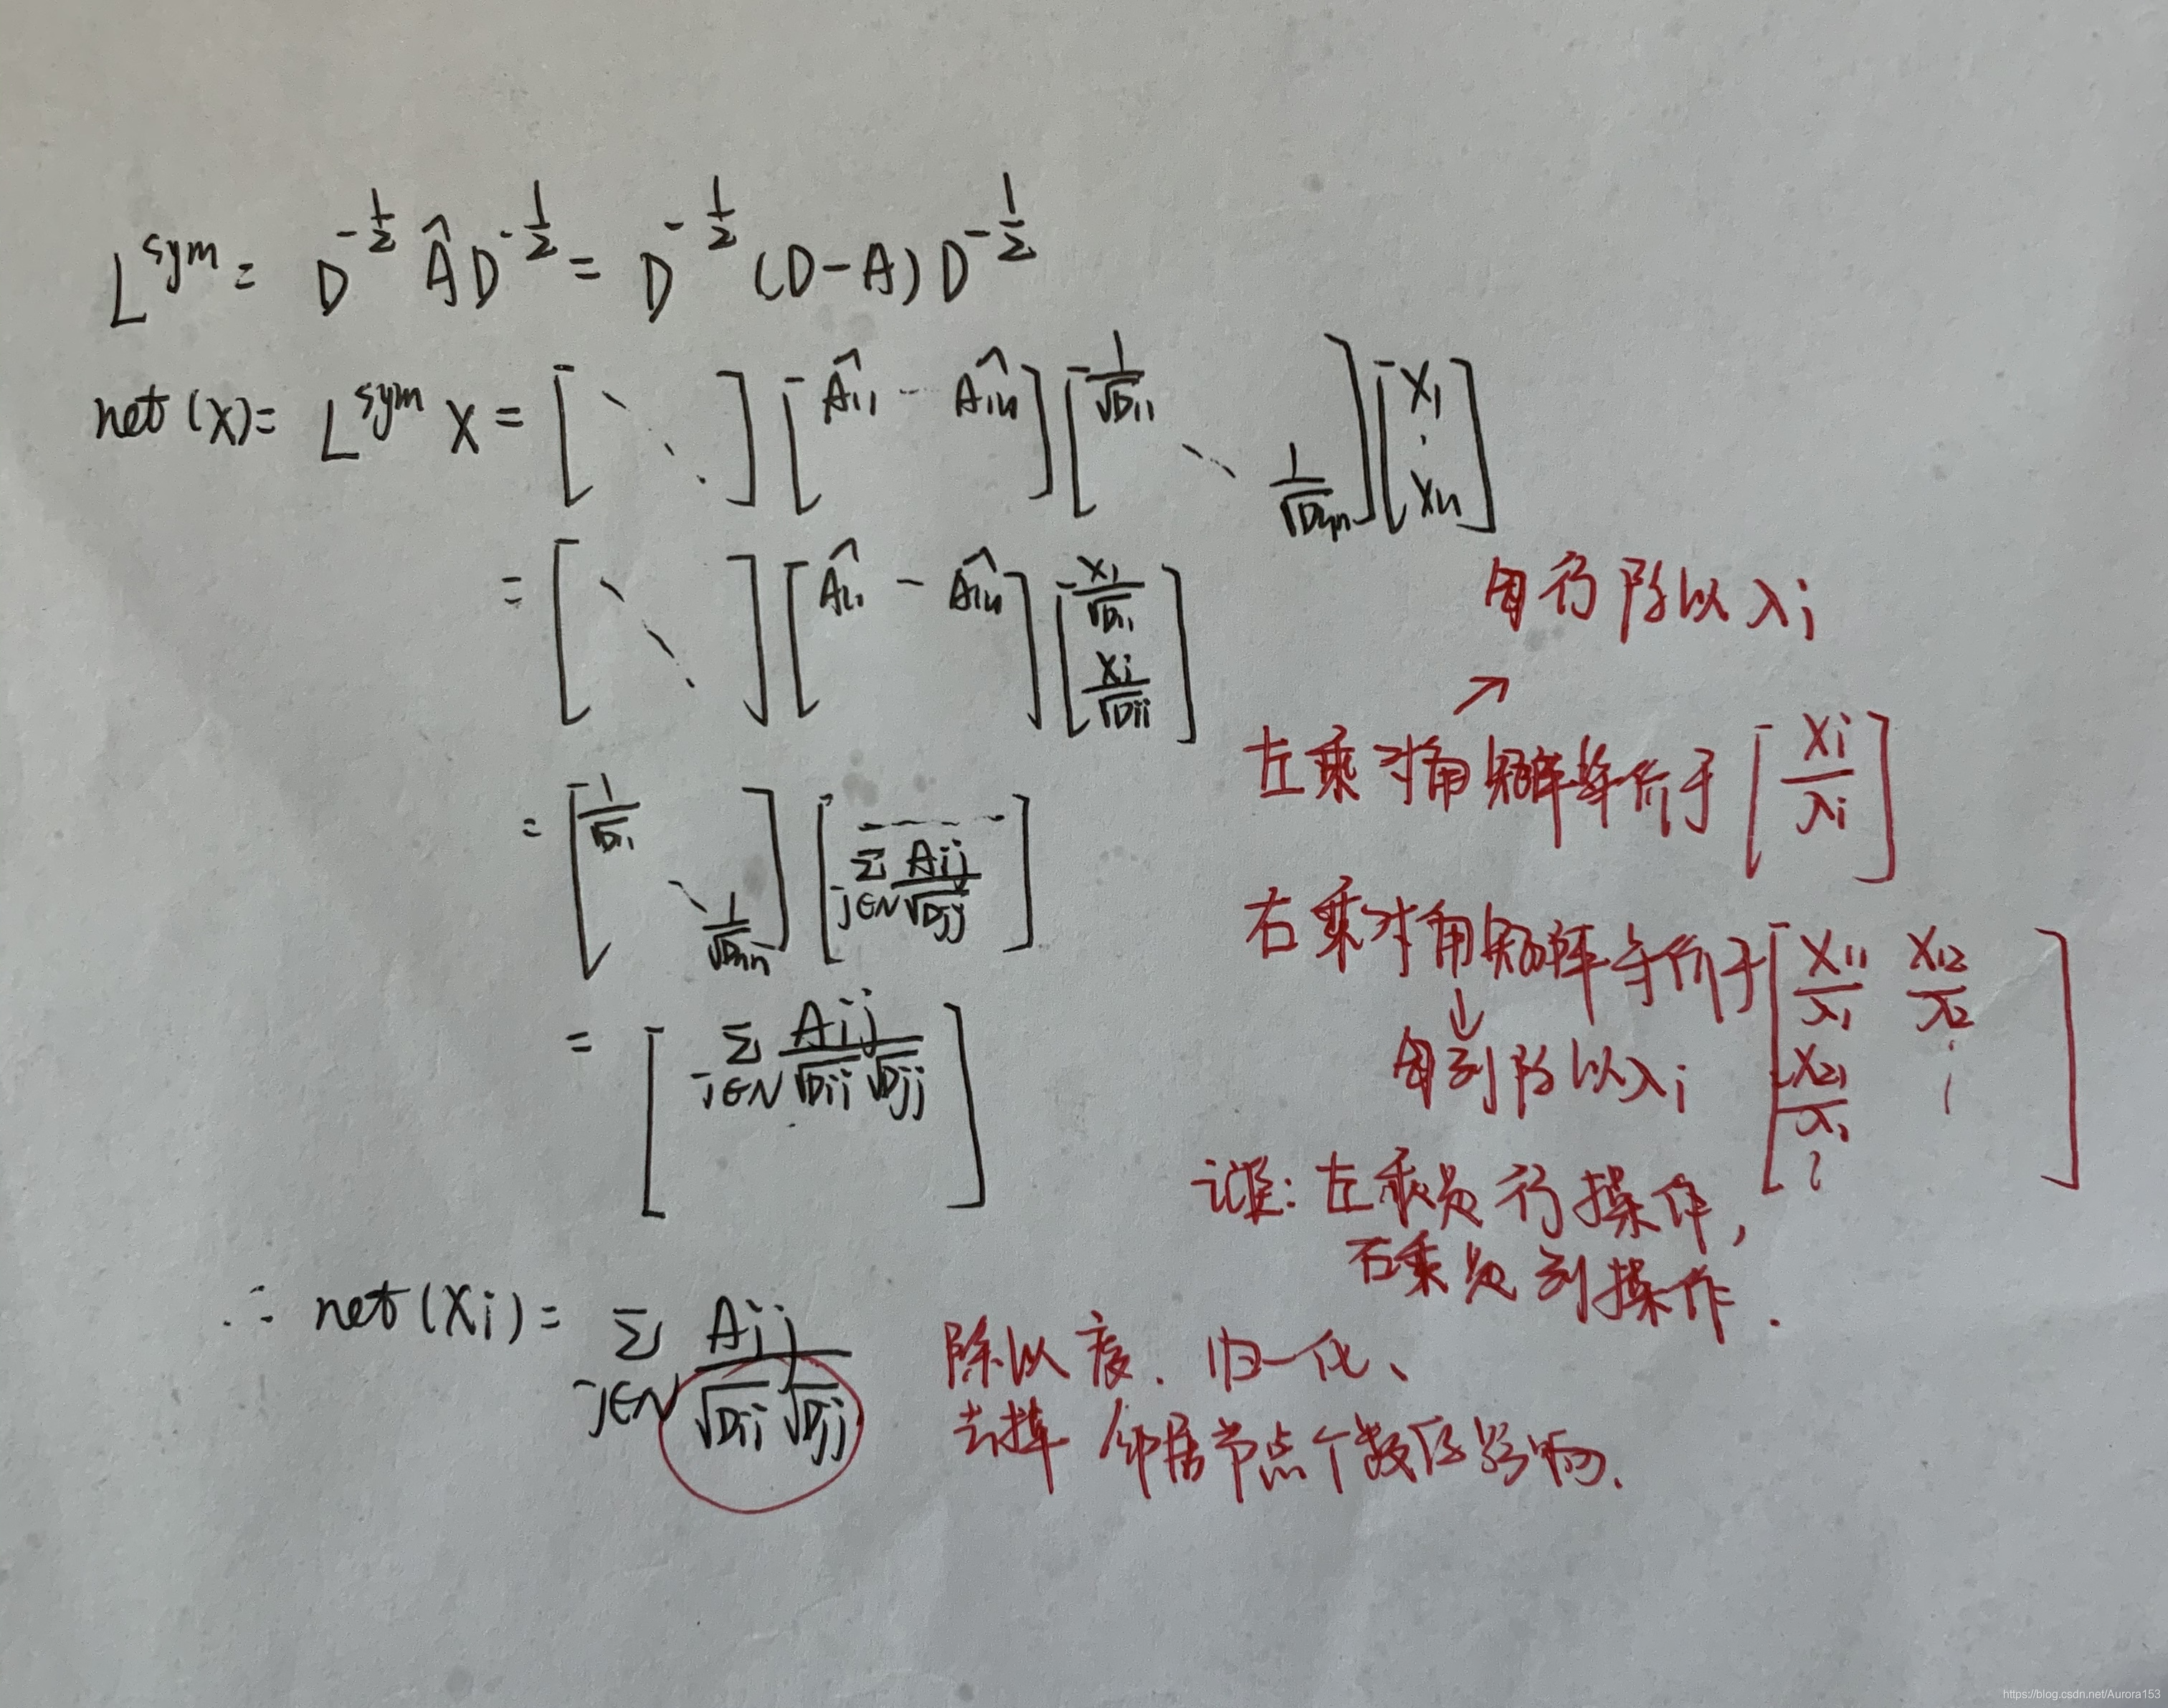 L^sym = D^-1/2 Â D^-1/2 = D^-1/2 (D-A) D^-1/2
net(X) = L^sym X = [⋱] [Â11 - Â1n] [1/√D11 ⋱ 1/√Dnn] [X1 ⋮ Xn]
= [⋱] [Â11 - Â1n] [X1/√D11 Xi/√Dii]
每行除以λi
↗
左乘对角矩阵等价于 [Xi/λi]
= [1/√D11 ⋱ 1/√Dnn] [Σ j∈N Aij/√Djj]
右乘对角矩阵等价于 [X11/λ1 X12/λ2 X21/λ1 ⋮]
↓
每列除以λi
= [Σ j∈N Aij/√Dii √Djj]
注: 左乘是行操作,
右乘是列操作.
∴ net(Xi) = Σ j∈N Aij/√Dii √Djj
除以度. 归一化、
去掉邻居节点个数的影响.
https://blog.csdn.net/Aurora153